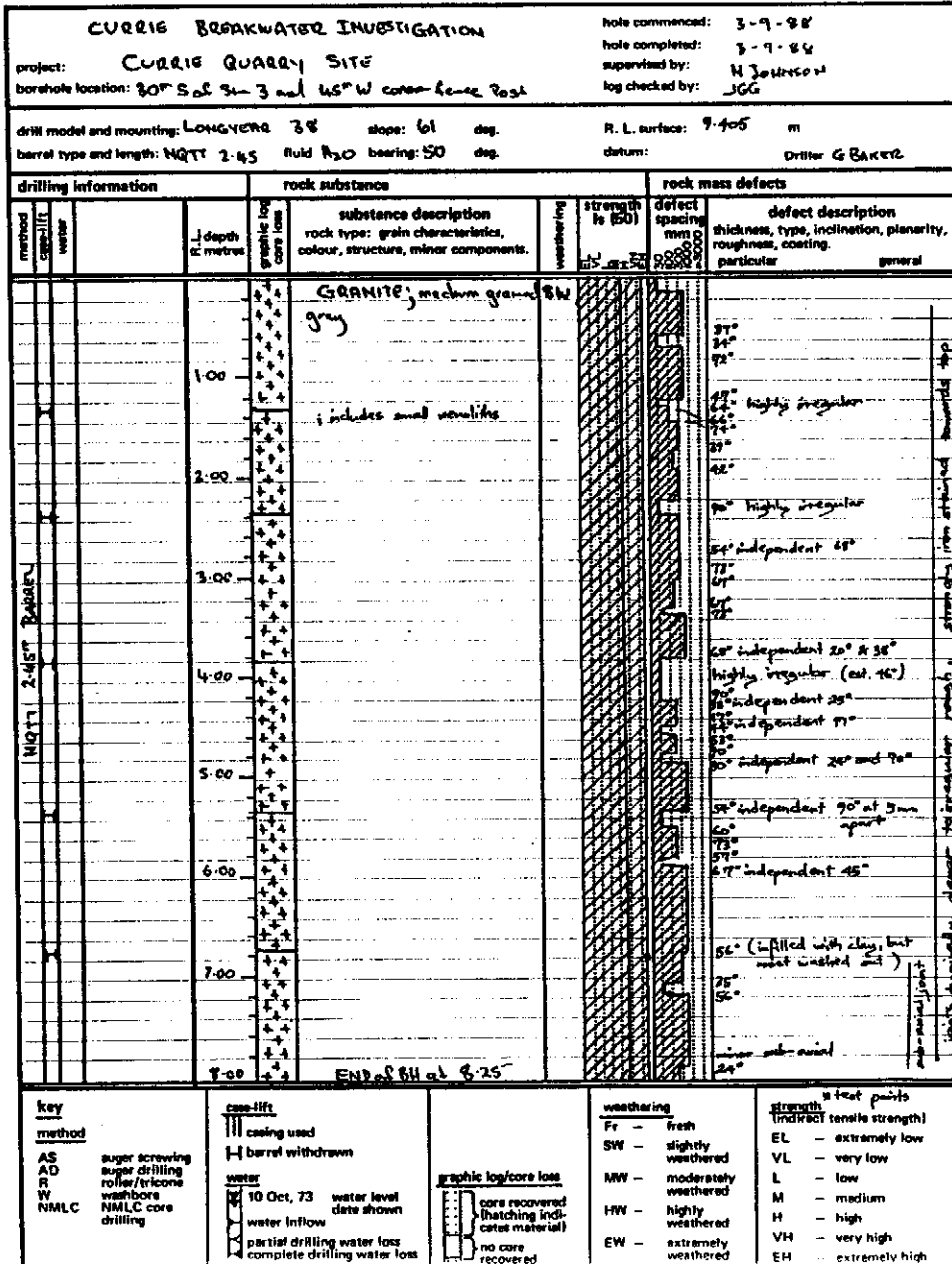 CURRIE BREAKWATER INVESTIGATION
project: CURRIE QUARRY SITE
borehole location: 30m S of Stn 3 and 45m W corner fence Post
hole commenced: 3-9-88
hole completed: 3-9-88
supervised by: N JOHNSON
log checked by: JGG
drill model and mounting: LONGYEAR 38 slope: 61 deg. R. L. surface: 9.405 m
barrel type and length: NQTT 2.45 fluid H2O bearing: 50 deg. datum: Driller G BAKER
drilling information rock substance rock mass defects
method
case-lift
water
R.L. depth metres
graphic log core loss
substance description
rock type: grain characteristics,
colour, structure, minor components.
weathering
strength
Is (50)
defect spacing mm
defect description
thickness, type, inclination, planarity,
roughness, coating.
particular general
GRANITE; medium grained SW
grey
37°
34°
1.00
highly irregular
; includes small xenoliths
74°
42°
2.00
90° highly irregular
54° independent 68°
73°
3.00
NQTT 2.45m BARREL
68° independent 20° & 38°
4.00
highly irregular (est. 46°)
90°
independent
5.00
90° independent
54° independent 90° at 5mm
apart
60°
73°
57°
6.00
67° independent 45°
56° (infilled with clay, but
most washed out)
7.00
25°
56°
sub-axial joint
minor sub-axial
24°
8.00
END of BH at 8.25
key
method
AS auger screwing
AD auger drilling
R roller/tricone
W washbore
NMLC NMLC core
drilling
case-lift
casing used
barrel withdrawn
water
10 Oct, 73 water level
date shown
water inflow
partial drilling water loss
complete drilling water loss
graphic log/core loss
core recovered
(hatching indi-
cates material)
no core
recovered
weathering
Fr – fresh
SW – slightly
weathered
MW – moderately
weathered
HW – highly
weathered
EW – extremely
weathered
test points
strength
(indirect tensile strength)
EL – extremely low
VL – very low
L – low
M – medium
H – high
VH – very high
EH – extremely high